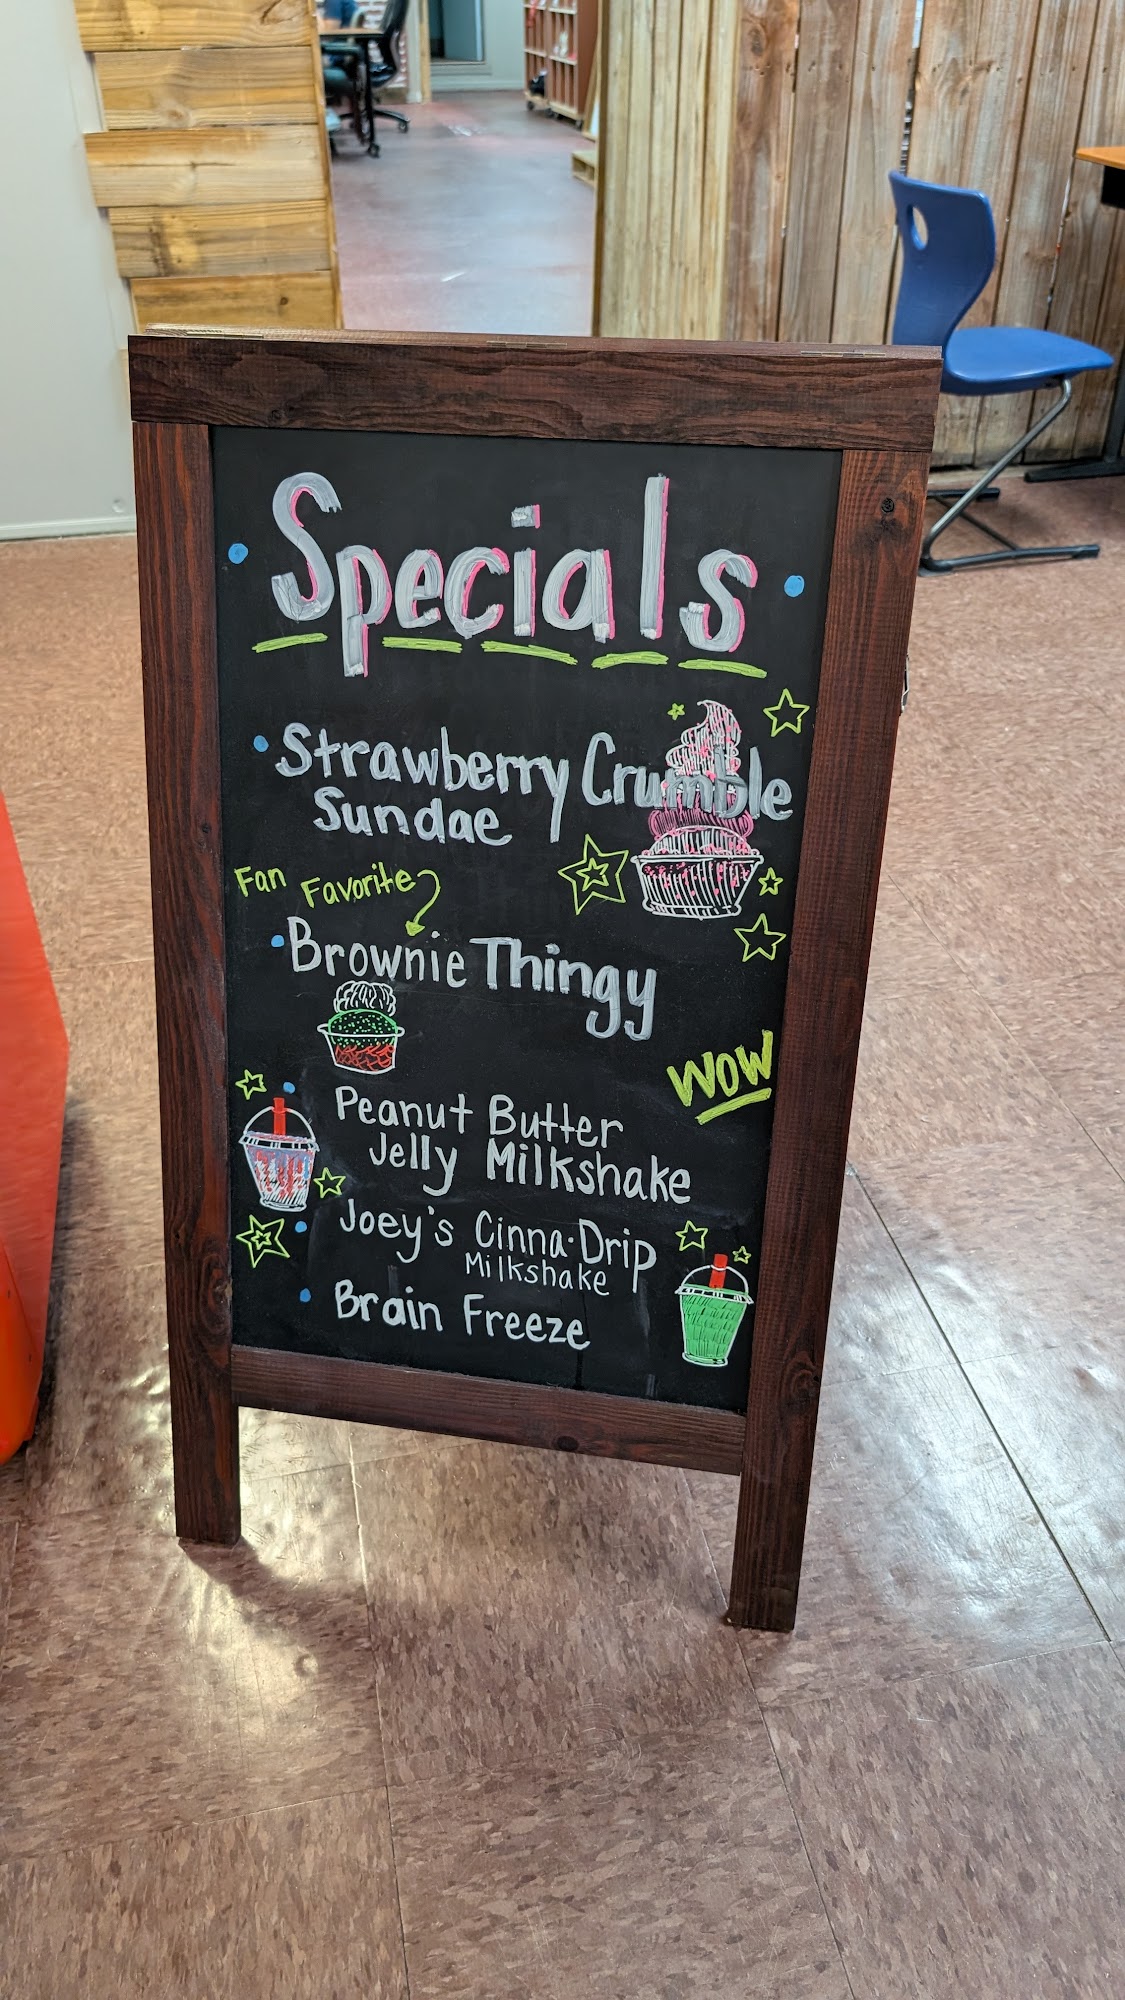 Specials
Strawberry Crumble
Sundae
Fan Favorite
Brownie Thingy
WOW
Peanut Butter
Jelly Milkshake
Joey's Cinna-Drip
Milkshake
Brain Freeze